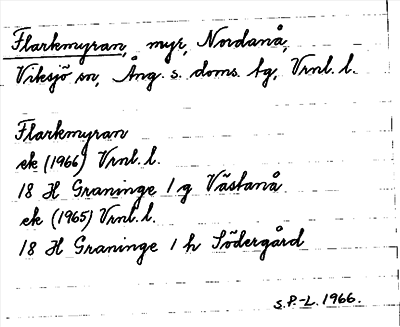 Flarkmyran, myr, Nordanå,
Viksjö sn, Ång. s. doms. tg, Vrnl. l.
Flarkmyran
ek (1966) Vrnl. l.
18 H Graninge 1 g Västanå
ek (1965) Vrnl. l.
18 H Graninge 1 h Södergård
s. P.-L. 1966.